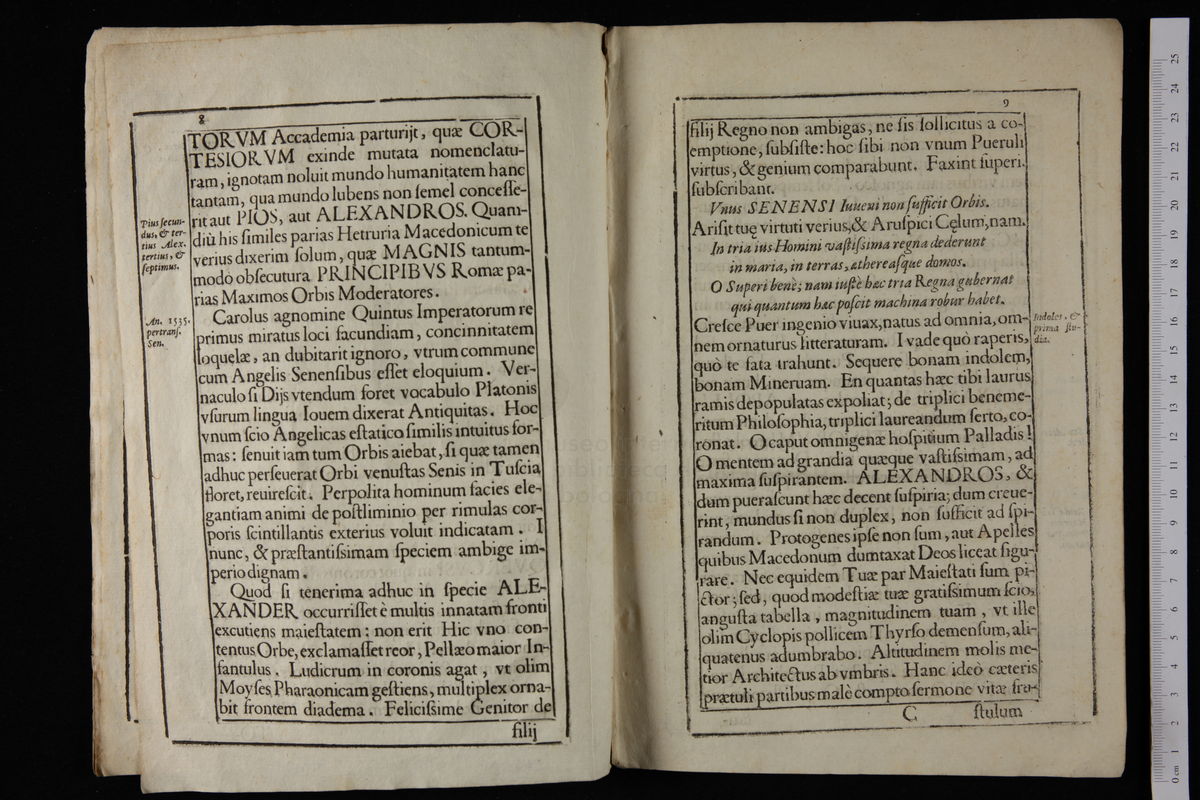 8
TORVM Accademia parturijt, quæ COR-
TESIORVM exinde mutata nomenclatu-
ram, ignotam noluit mundo humanitatem hanc
tantam, qua mundo lubens non ſemel conceſſe-
rit aut PIOS, aut ALEXANDROS. Quam-
diù his ſimiles parias Hetruria Macedonicum te
verius dixerim ſolum, quæ MAGNIS tantum-
modo obſecutura PRINCIPIBVS Romæ pa-
rias Maximos Orbis Moderatores.
Pius ſecun-
dus, & ter-
tius Alex.
tertius, &
ſeptimus.
Carolus agnomine Quintus Imperatorum re
primus miratus loci facundiam, concinnitatem
loquelæ, an dubitarit ignoro, vtrum commune
cum Angelis Senenſibus eſſet eloquium. Ver-
naculo ſi Dijs vtendum foret vocabulo Platonis
vſurum lingua Iouem dixerat Antiquitas. Hoc
vnum ſcio Angelicas eſtatico ſimilis intuitus for-
mas: ſenuit iam tum Orbis aiebat, ſi quæ tamen
adhuc perſeuerat Orbi venuſtas Senis in Tuſcia
floret, reuireſcit. Perpolita hominum facies ele-
gantiam animi de poſtliminio per rimulas cor-
poris ſcintillantis exterius voluit indicatam. I
nunc, & præſtantiſsimam ſpeciem ambige im-
perio dignam.
An. 1535.
pertranſ.
Sen.
Quod ſi tenerima adhuc in ſpecie ALE-
XANDER occurriſſet è multis innatam fronti
excutiens maieſtatem: non erit Hic vno con-
tentus Orbe, exclamaſſet reor, Pellæo maior In-
fantulus. Ludicrum in coronis agat, vt olim
Moyſes Pharaonicam geſtiens, multiplex orna-
bit frontem diadema. Feliciſsime Genitor de
filij
9
filij Regno non ambigas, ne ſis ſollicitus a co-
emptione, ſubſiſte: hoc ſibi non vnum Pueruli
virtus, & genium comparabunt. Faxint ſuperi.
ſubſcribant.
Vnus SENENSI Iuueni non ſufficit Orbis.
Ariſit tuę virtuti verius, & Aruſpici Cęlum, nam.
In tria ius Homini vaſtiſsima regna dederunt
in maria, in terras, æthereaſque domos.
O Superi benè; nam iuſtè hæc tria Regna gubernat
qui quantum hæc poſcit machina robur habet.
Creſce Puer ingenio viuax, natus ad omnia, om-
nem ornaturus litteraturam. I vade quò raperis,
quò te fata trahunt. Sequere bonam indolem,
bonam Mineruam. En quantas hæc tibi laurus
ramis depopulatas expoliat; de triplici beneme-
ritum Philoſophia, triplici laureandum ſerto, co-
ronat. O caput omnigenæ hoſpitium Palladis!
O mentem ad grandia quæque vaſtiſsimam, ad
maxima ſuſpirantem. ALEXANDROS, &
dum pueraſcunt hæc decent ſuſpiria; dum creue-
rint, mundus ſi non duplex, non ſufficit ad ſpi-
randum. Protogenes ipſe non ſum, aut Apelles
quibus Macedonum dumtaxat Deos liceat figu-
rare. Nec equidem Tuæ par Maieſtati ſum pi-
ctor; ſed, quod modeſtiæ tuæ gratiſsimum ſcio,
anguſta tabella, magnitudinem tuam, vt ille
olim Cyclopis pollicem Thyrſo demenſum, ali-
quatenus adumbrabo. Altitudinem molis me-
tior Architectus ab vmbris. Hanc ideò cæteris
prætuli partibus malè compto ſermone vitæ fru-
Indoles, &
prima ſtu-
dia.
C
ſtulum